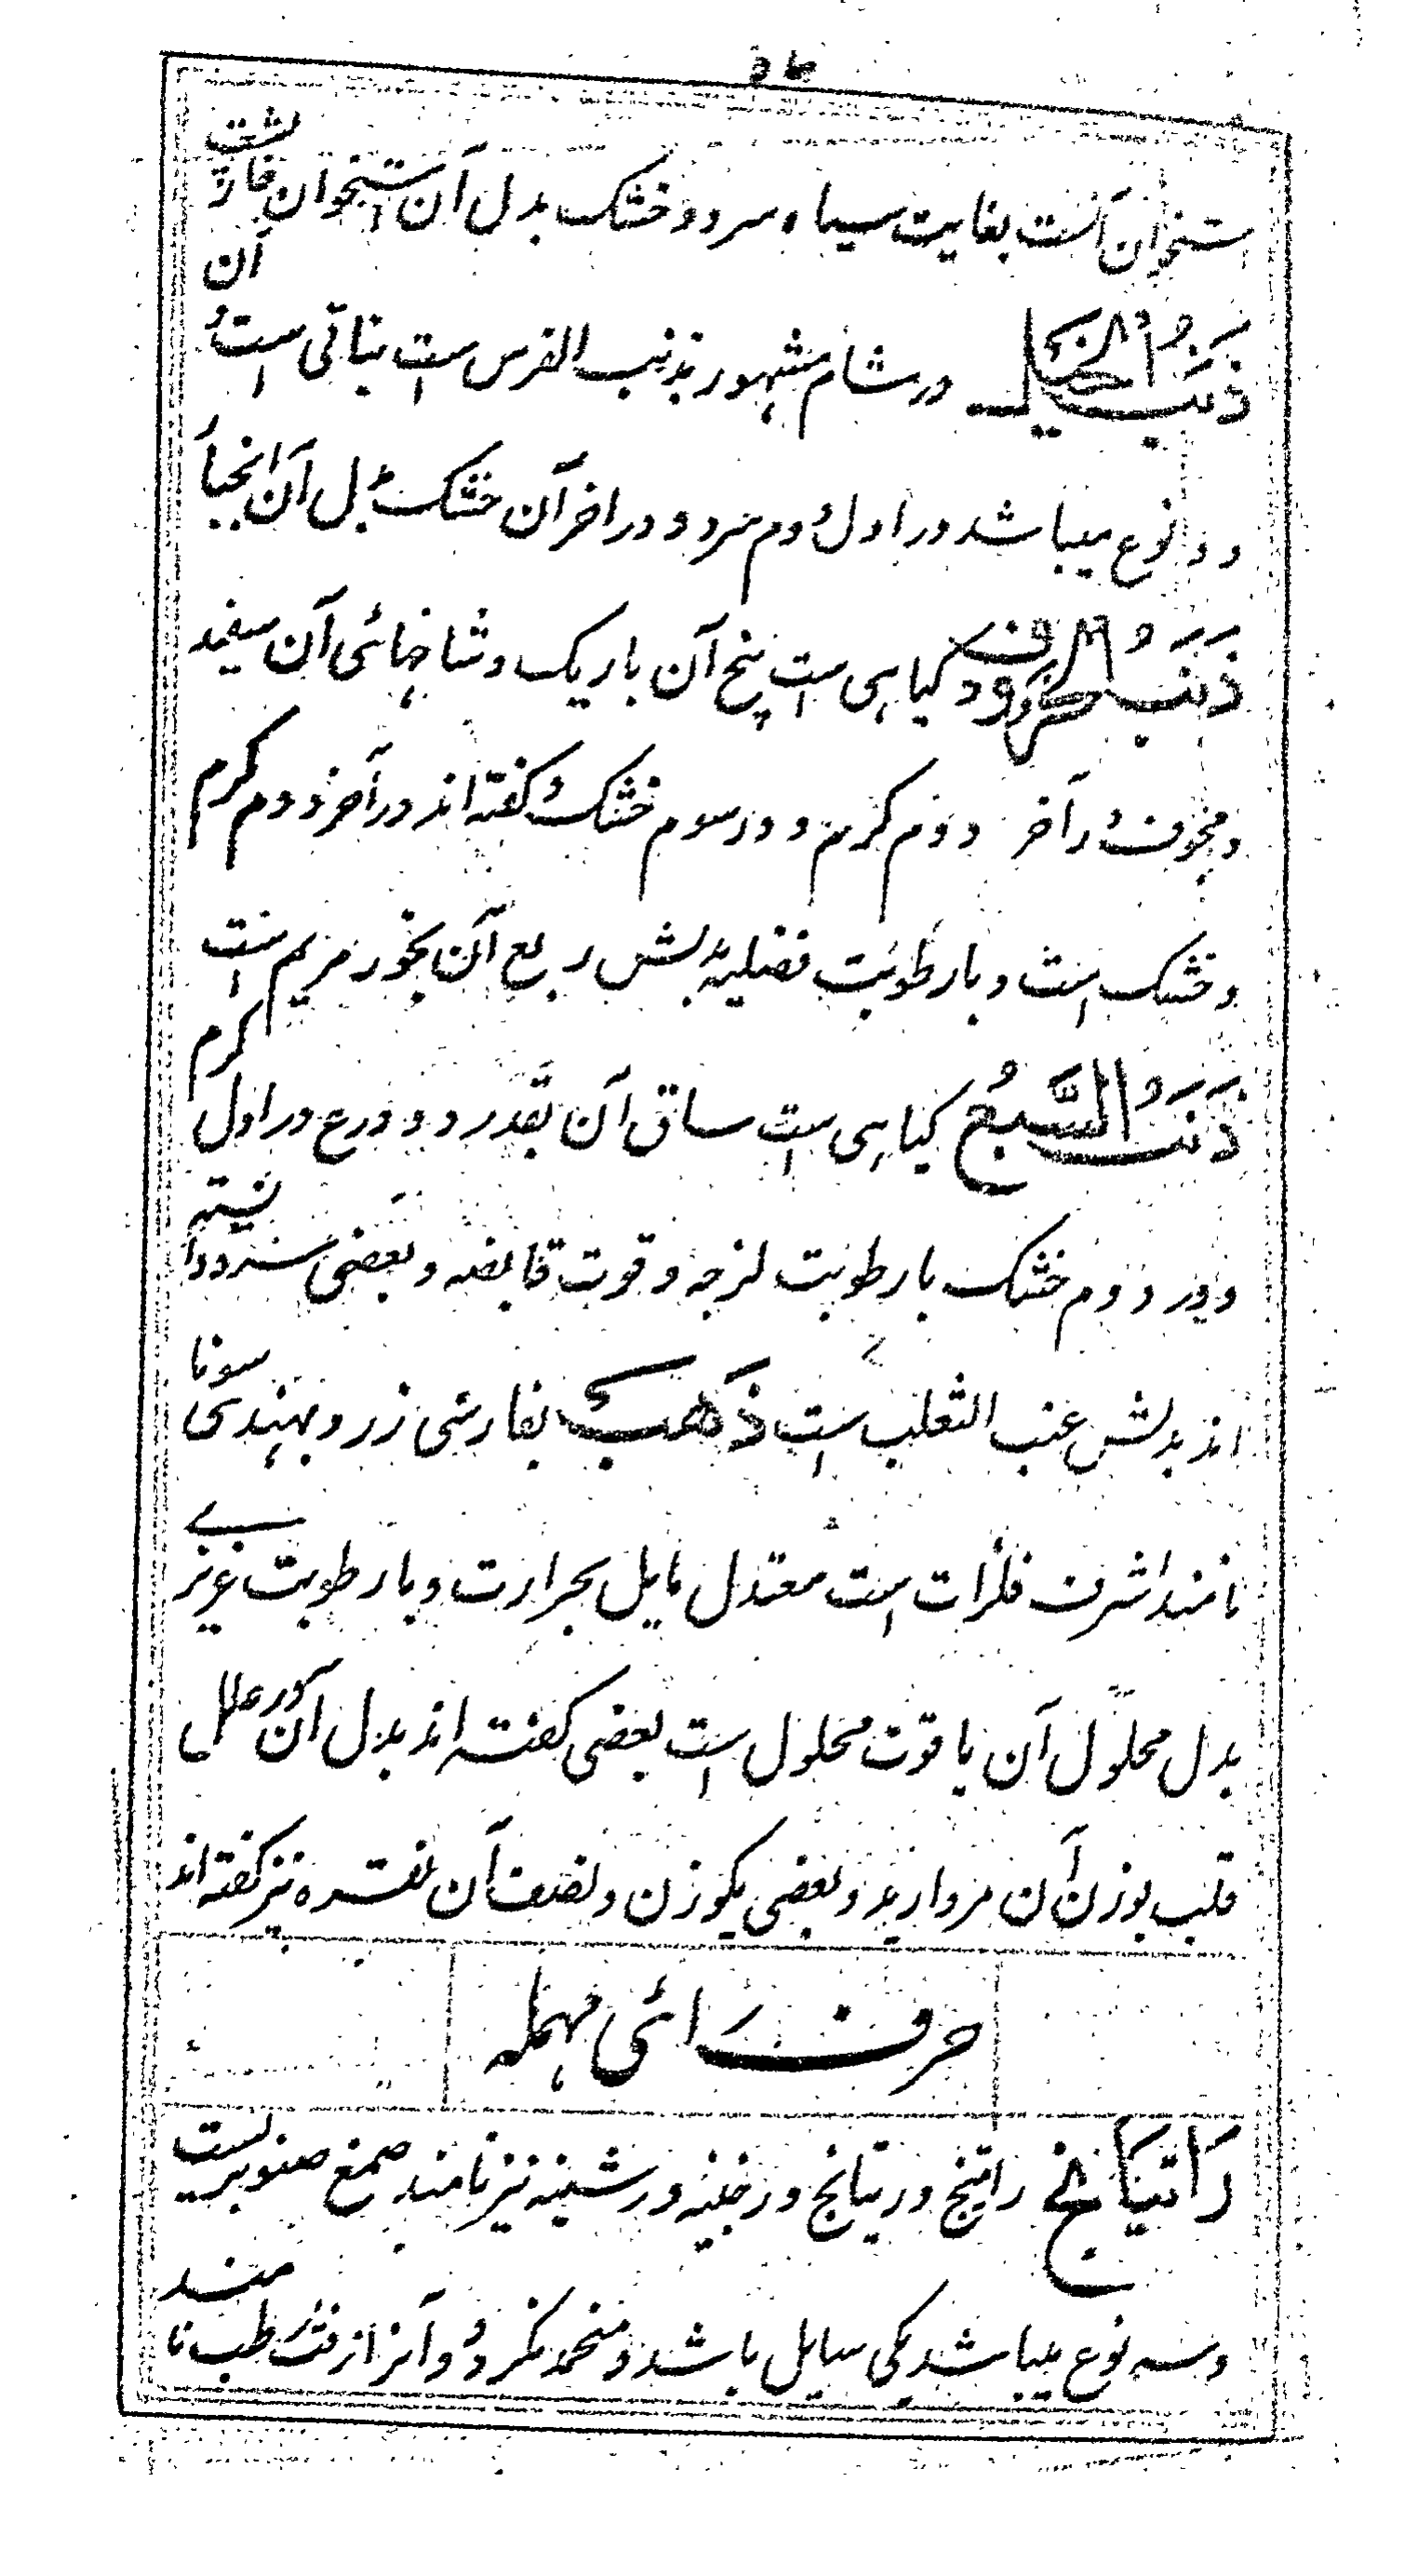 استخوان آنست بغایت سیاه سرد و خشک بدل آن استخوان خارپشت آن
ذَنَبُ الخَیل در شام مشهور بذنب الفرس است نباتی است و
دو نوع میباشد در اول دوم سرد و در اخر آن خشک بدل آن انجبار
ذَنَبُ گیاهی است بیخ آن باریک و شاخهائی آن سفید
و مجوف در آخر دوم گرم و در سوم خشک و گفته اند در آخر دوم گرم
و خشک است و بارطوبت فضلیه بدلش ربع آن بخور مریم است
ذَنَبُ السَّبُع گیاهی است ساق آن بقدر دو ذرع در اول گرم
و در دوم خشک بارطوبت لزجه و قوت قابضه و بعضی سرد دانسته
اند بدلش عنب الثعلب است ذَهَب بفارسی زر و بهندی سونا
نامند اشرف فلزات است معتدل مایل بحرارت و بارطوبت غریزیے
بدل محلول آن یاقوت محلول است بعضی گفته اند بدل آن در علل
قلب بوزن آن مروارید و بعضی یکوزن و نصف آن نقره نیز گفته اند
حرف رائی مهمله
رَاتیَانَج راتینج و ریتانج و رشینه نیز نامند صمغ صنوبریست
و سه نوع میباشد یکی سایل باشد و منجمد نگردد و آنرا زفت رطب نامند